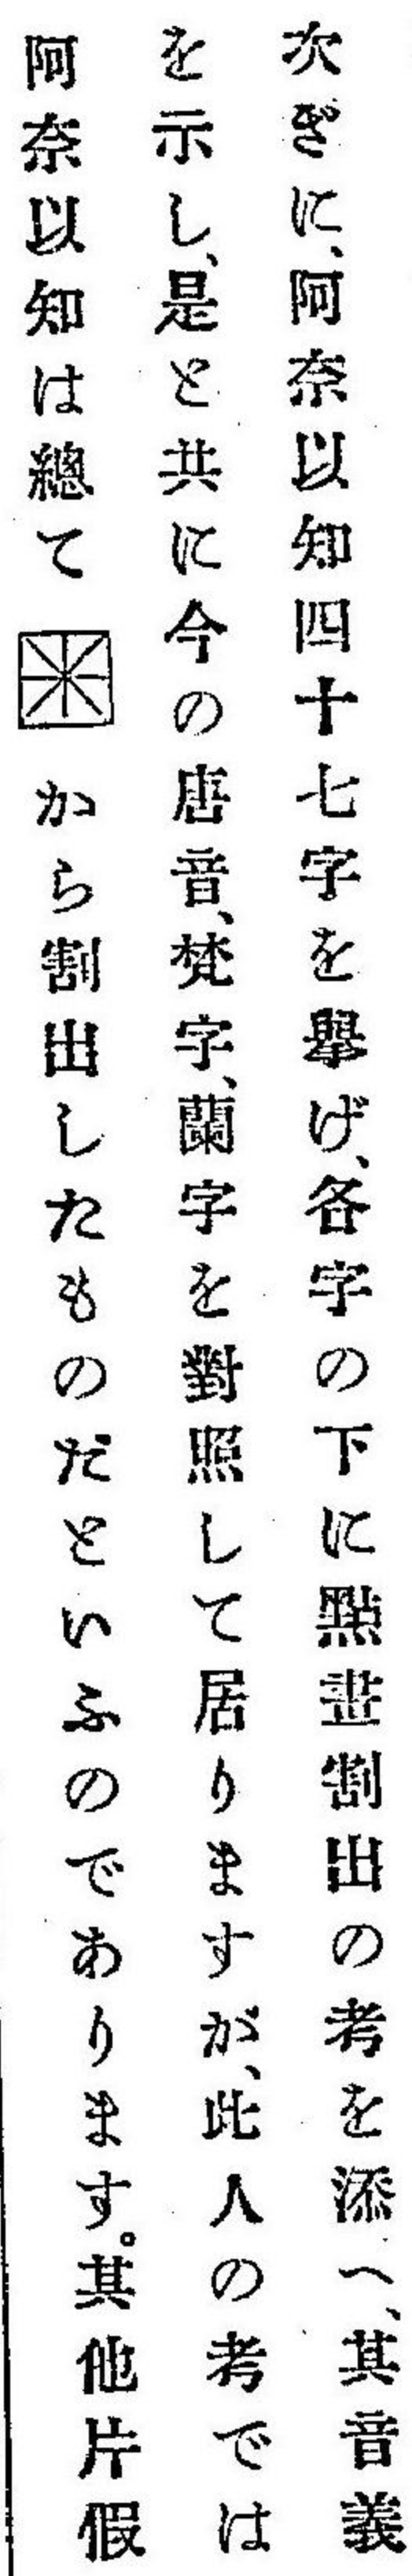 次ぎに、阿奈以知四十七字を擧げ、各字の下に點畫割出の考を添へ、其音義
を示し、是と共に今の唐音、梵字、蘭字を對照して居りますが、此人の考では
阿奈以知は總て から割出したものだといふのであります。其他片假